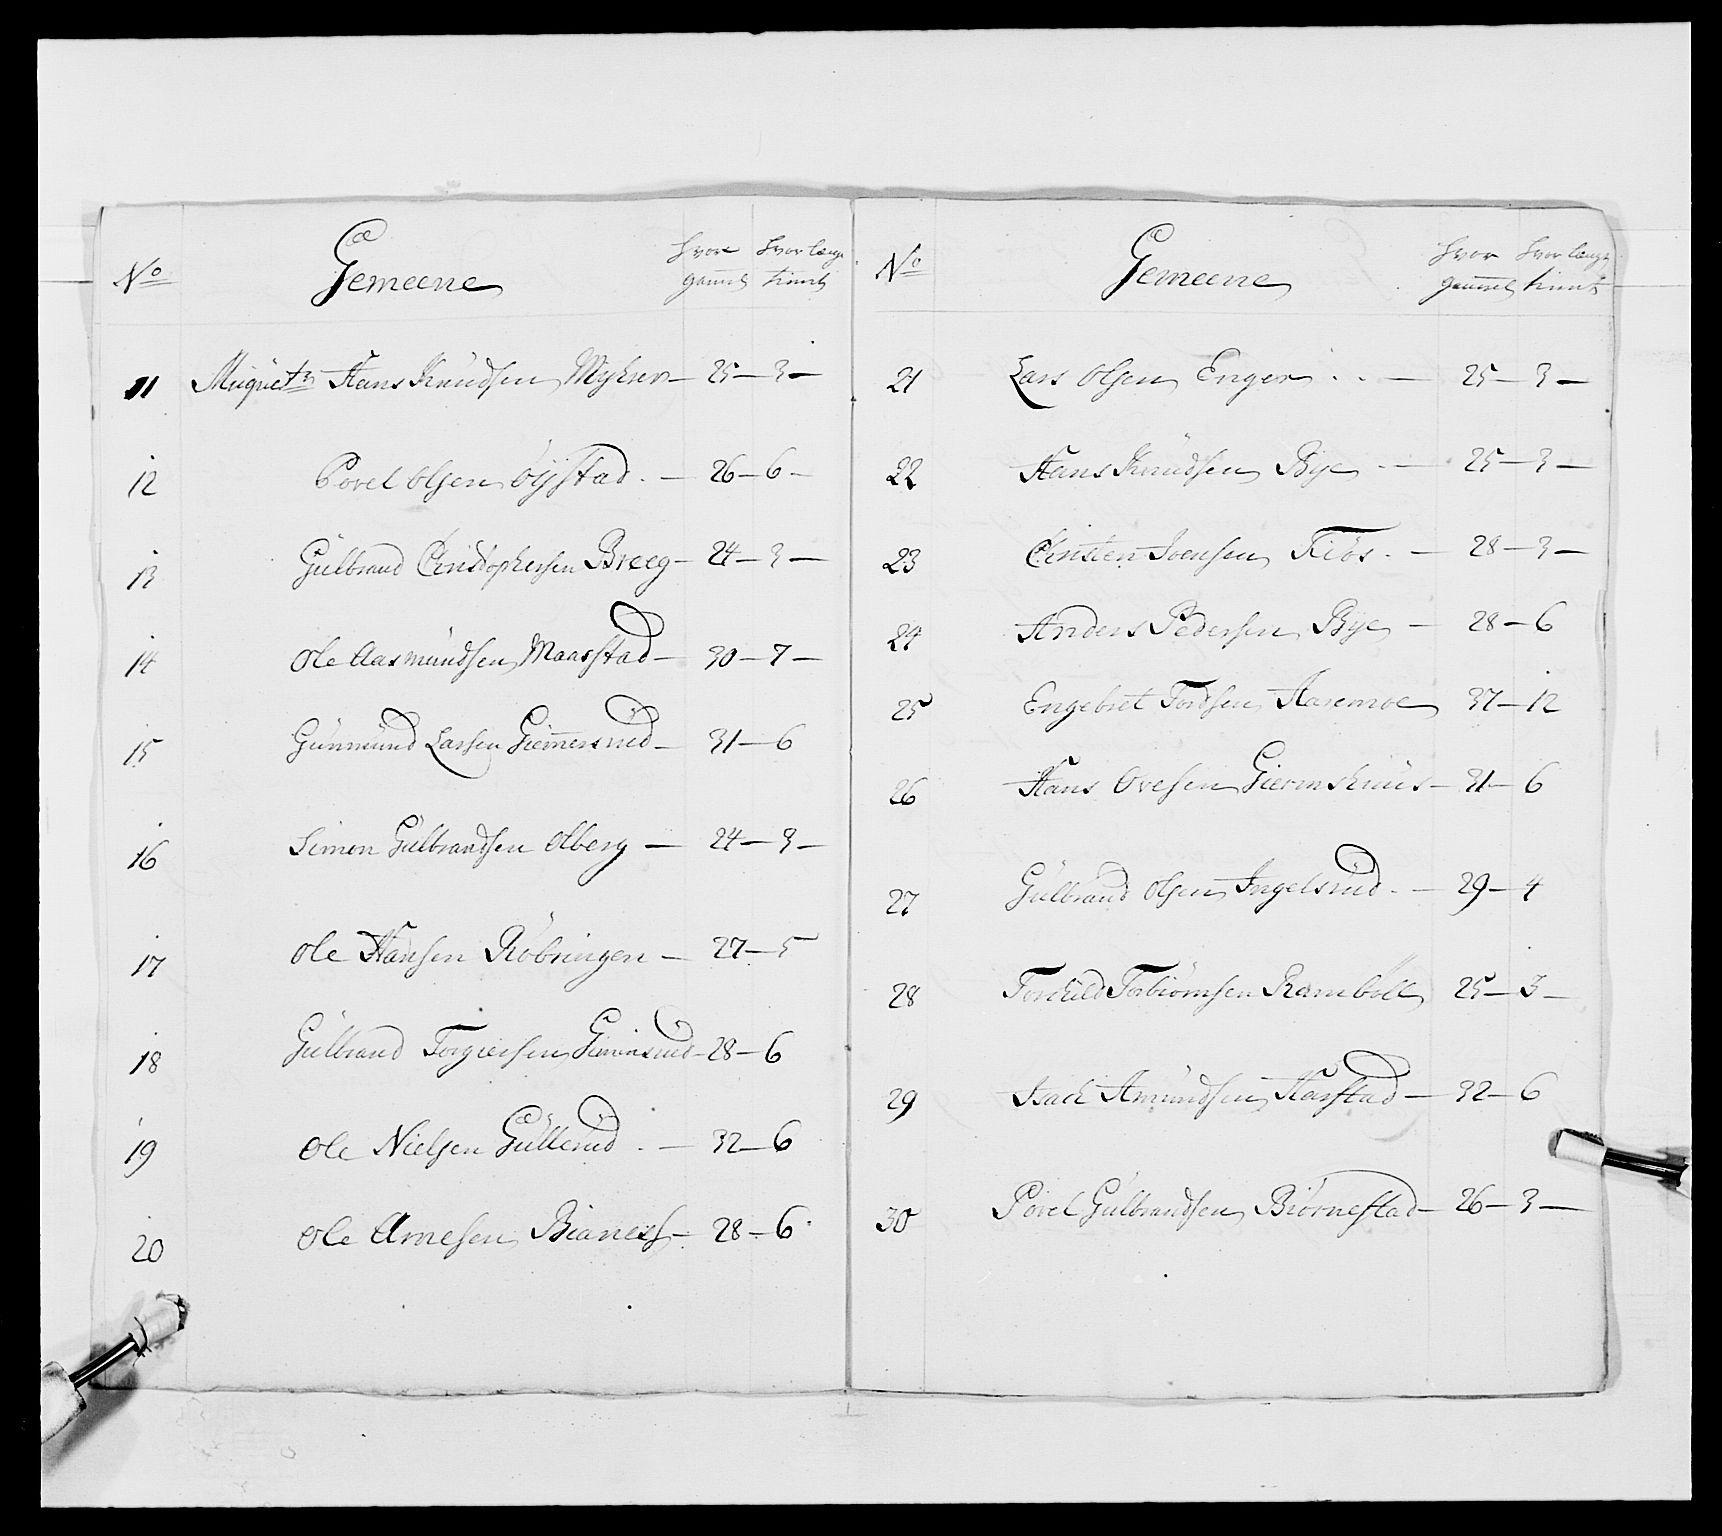 No Gemeene hvor gammel hvor længe tient
11 Musquetr Hans Knudsen Myhren — 25 — 3 —
12 Povel Olsen Øystad — 26 — 6 —
13 Gulbrand Christophersen Breeg — 24 — 3 —
14 Ole Aasmundsen Maarstad — 30 — 7 —
15 Gunmund Larsen Giemersrud — 31 — 6
16 Simon Gulbrandsen Olberg — 24 — 3 —
17 Ole Hansen Købringen — 27 — 5
18 Gulbrand Torgiersen — 28 — 6
19 Ole Nielsen Gullerud — 32 — 6
20 Ole Arnesen — 28 — 6
No Gemeene hvor gammel hvor længe tient
21 Lars Olsen Enger — 25 — 3 —
22 Hans Knudsen Bye — 25 — 3 —
23 Christen Ivensen Fiøs — 28 — 3 —
24 Anders Pedersen Bye — 28 — 6
25 Engebret Tordsen Haremoe 37 — 12
26 Hans Ovesen Giermshuus — 31 — 6
27 Gulbrand Olsen Ingelsrud — 29 — 4
28 Torkild Torbiørnsen Rambøll 25 — 3 —
29 Isach Amundsen Harstad — 32 — 6
30 Povel Gulbrandsen Biørnestad — 26 — 3 —